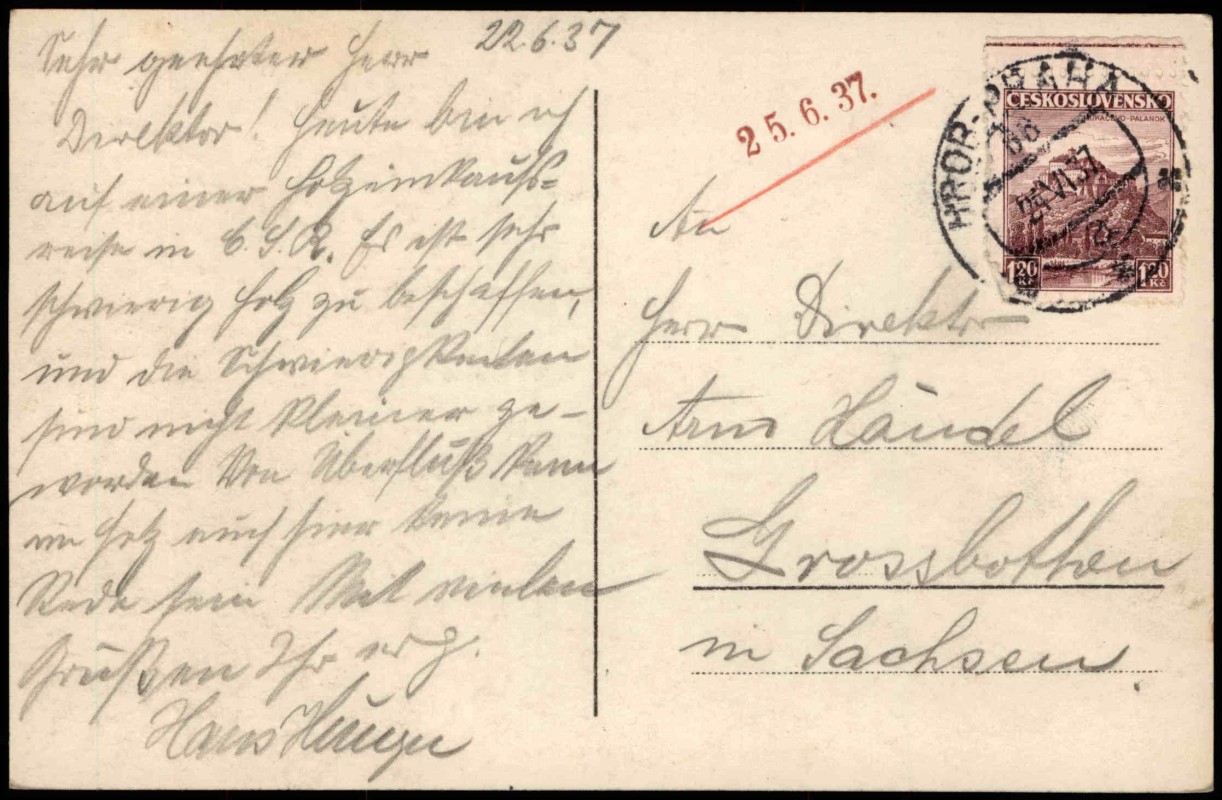 22.6.37
Sehr geehrter Herr
Direktor! Heute bin ich
auf einer Holzeinkaufs=
reise in C.S.R. Es ist sehr
schwierig Holz zu beschaffen,
und die Schwierigkeiten
sind nicht kleiner ge-
worden Von Überfluß kann
im Holz auch hier keine
Rede sein Mit vielen
Grüßen Ihr erg.
Hans
25.6.37.
An
Herr Direktor
Arno Händel
Grossbothen
in Sachsen
ČESKOSLOVENSKO
MUKAČEVO-PALANOK
1.20 Kč 1.20 Kč
PRAHA
VI.37